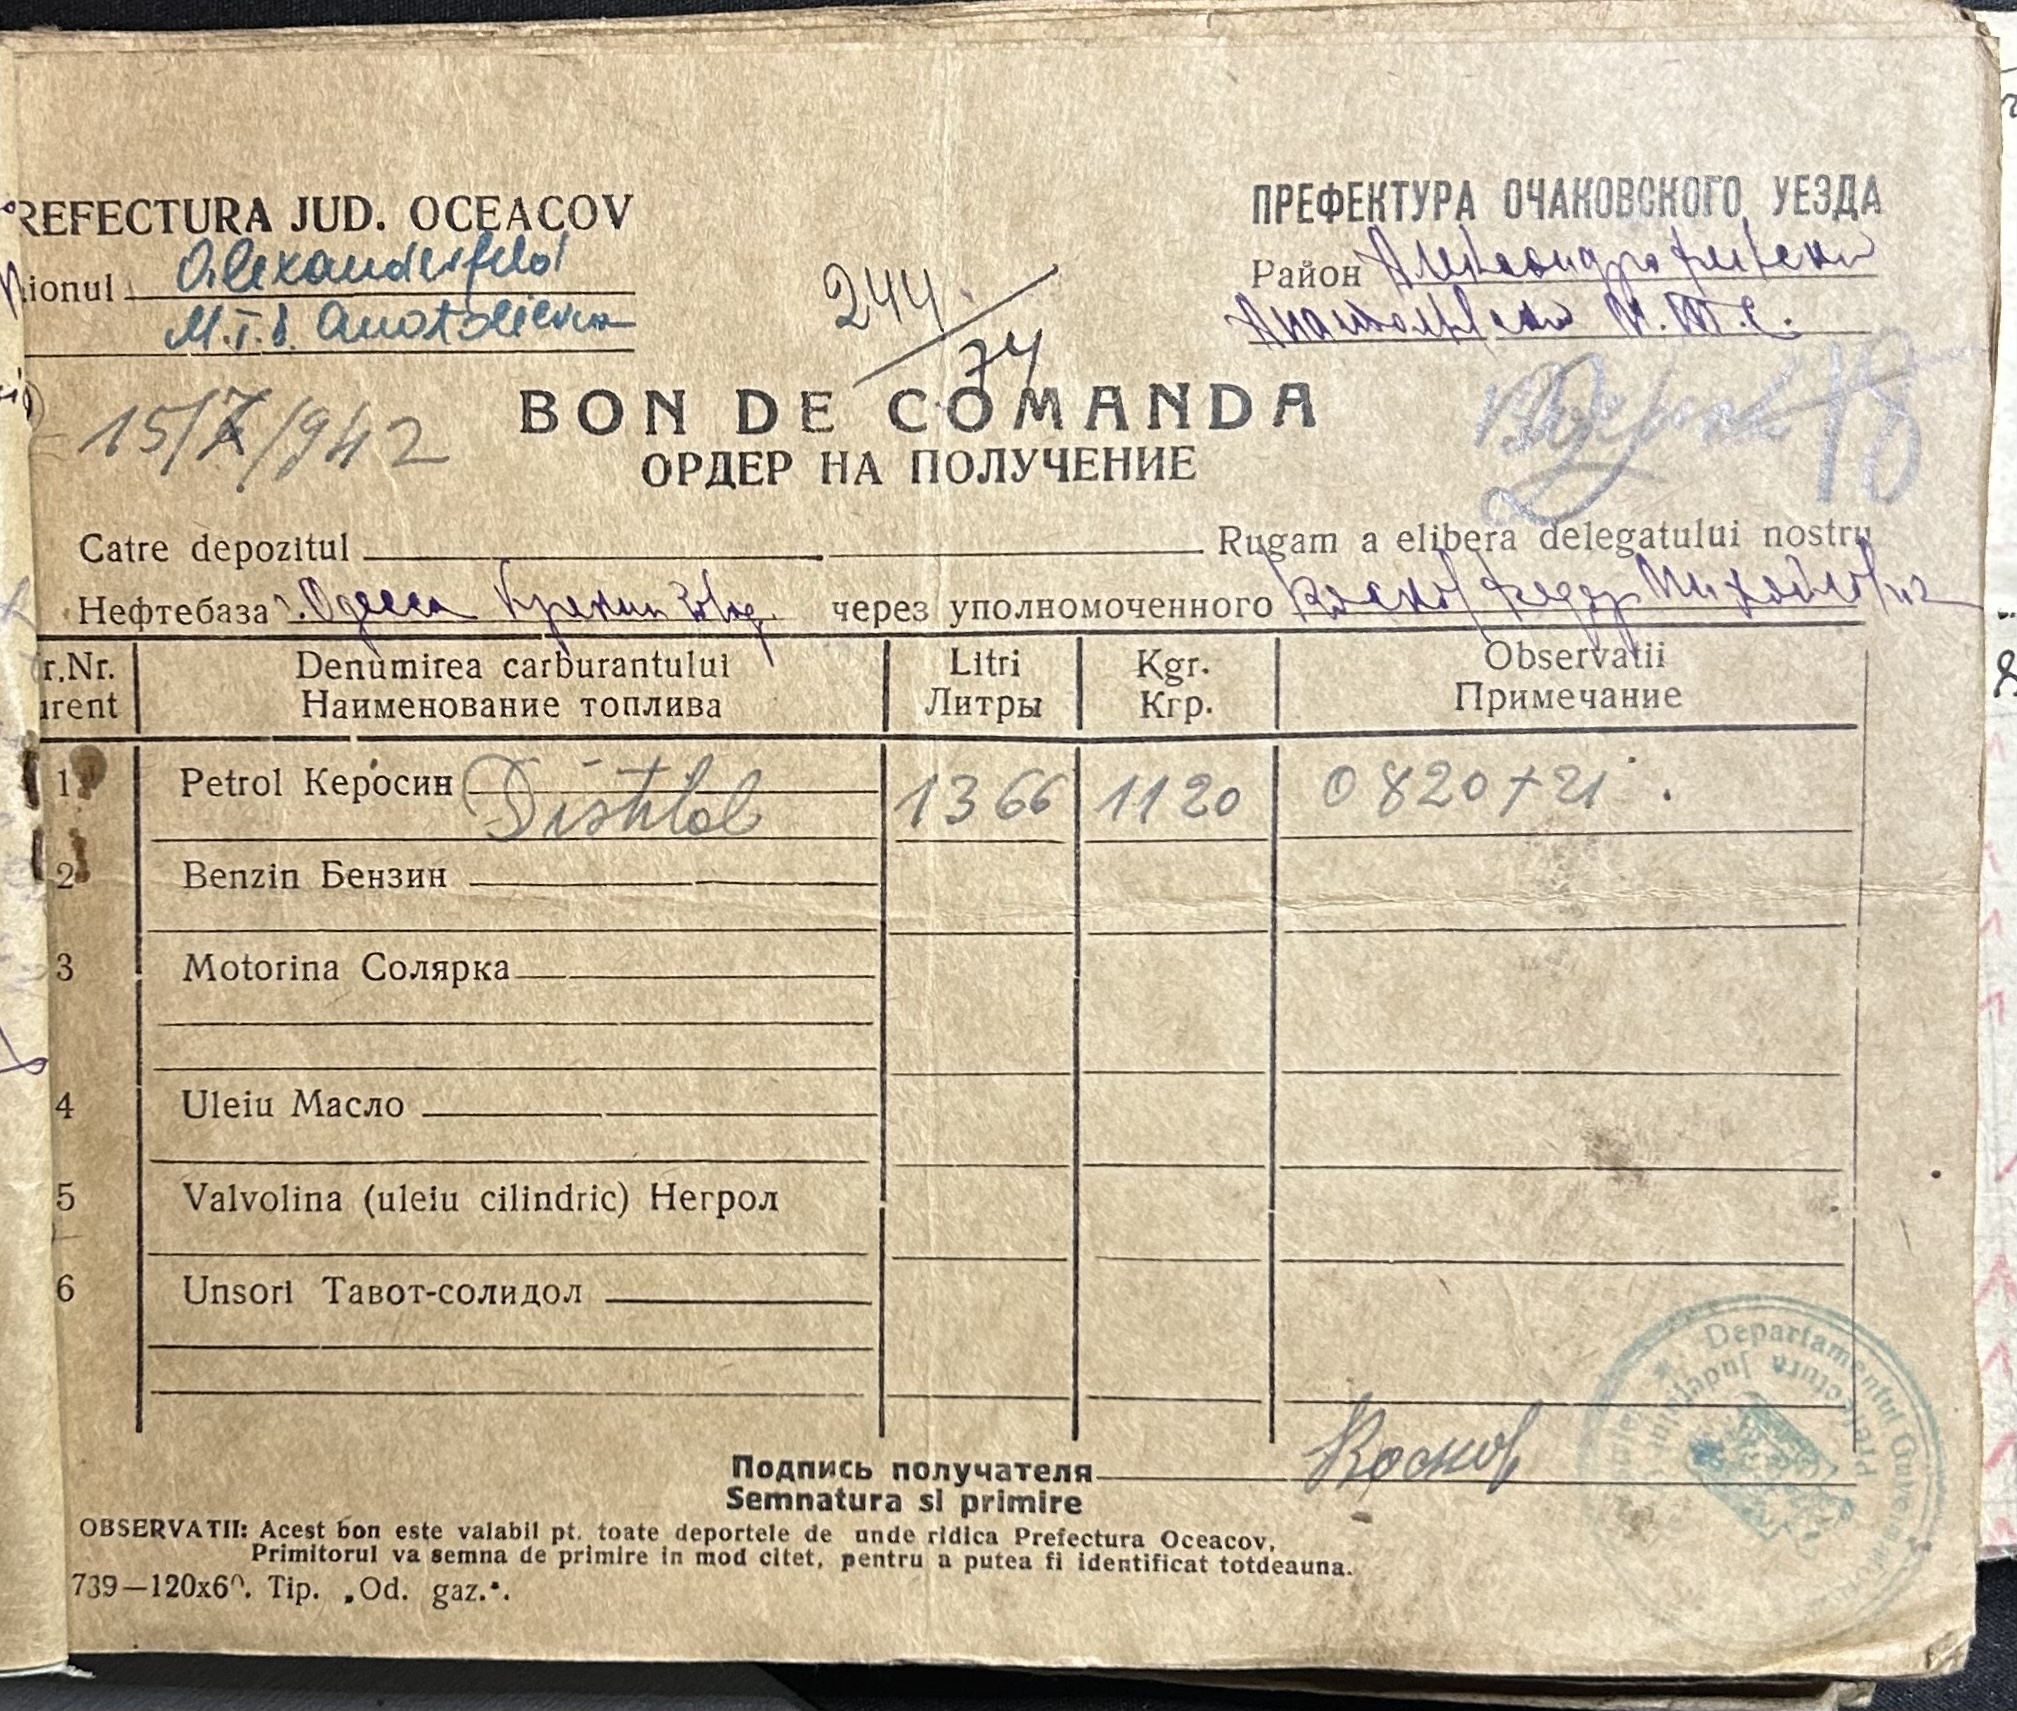 REFECTURA JUD. OCEACOV
ПРЕФЕКТУРА ОЧАКОВСКОГО УЕЗДА
ionul Alexanderfeld
Район
M.T.S. Anatolievca
М.Т.С.
244/34
15/7/942
BON DE COMANDA
ОРДЕР НА ПОЛУЧЕНИЕ
18
Catre depozitul Rugam a elibera delegatului nostru
Нефтебаза г. Одесса Крекинг Завод через уполномоченного Федор Михайлович
r.Nr. Denumirea carburantului Litri Kgr. Observatii
rent Наименование топлива Литры Кгр. Примечание
1 Petrol Керосин Distilat 1366 1120 0820+21
2 Benzin Бензин
3 Motorina Солярка
4 Uleiu Масло
5 Valvolina (uleiu cilindric) Негрол
6 Unsori Тавот-солидол
Подпись получателя
Semnatura si primire
OBSERVATII: Acest bon este valabil pt. toate deportele de unde ridica Prefectura Oceacov,
Primitorul va semna de primire in mod citet, pentru a putea fi identificat totdeauna.
739—120x60. Tip. „Od. gaz.".
Departamentul
Prefectura Judetului